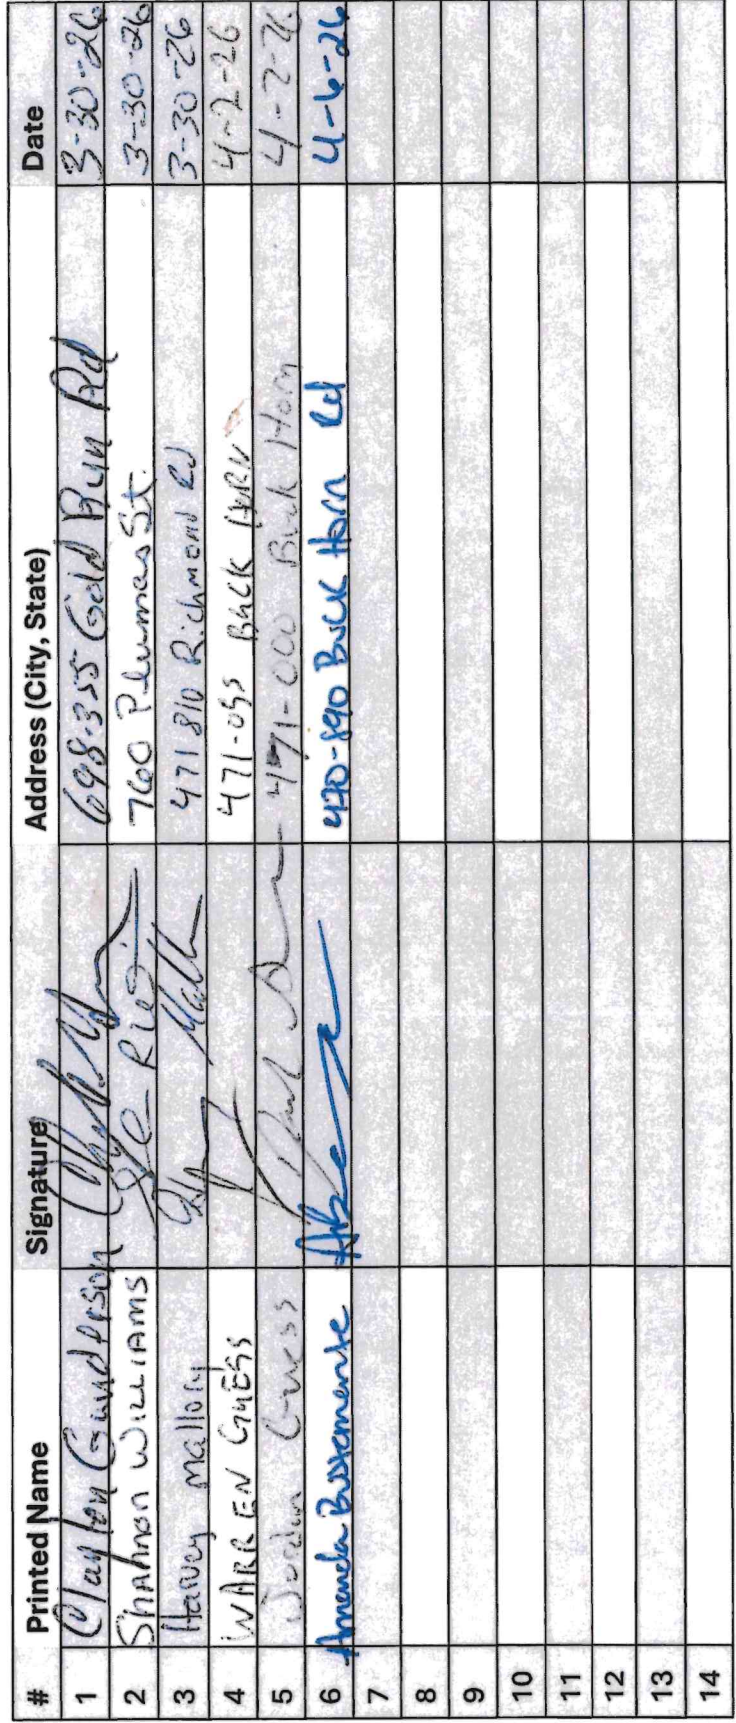 # Printed Name Signature Address (City, State) Date
1 Clayton Gunderson 698-355 Gold Run Rd 3-30-26
2 Shannon Williams 760 Plumas St. 3-30-26
3 Harvey Mallory 471810 Richmond Rd 3-30-26
4 WARREN GUESS 471-055 BUCK HORN 4-2-26
5 Jordan Guess 471-000 Buck Horn 4-2-26
6 Amanda Bustamente 470-890 Buck Horn Rd 4-6-26
7
8
9
10
11
12
13
14